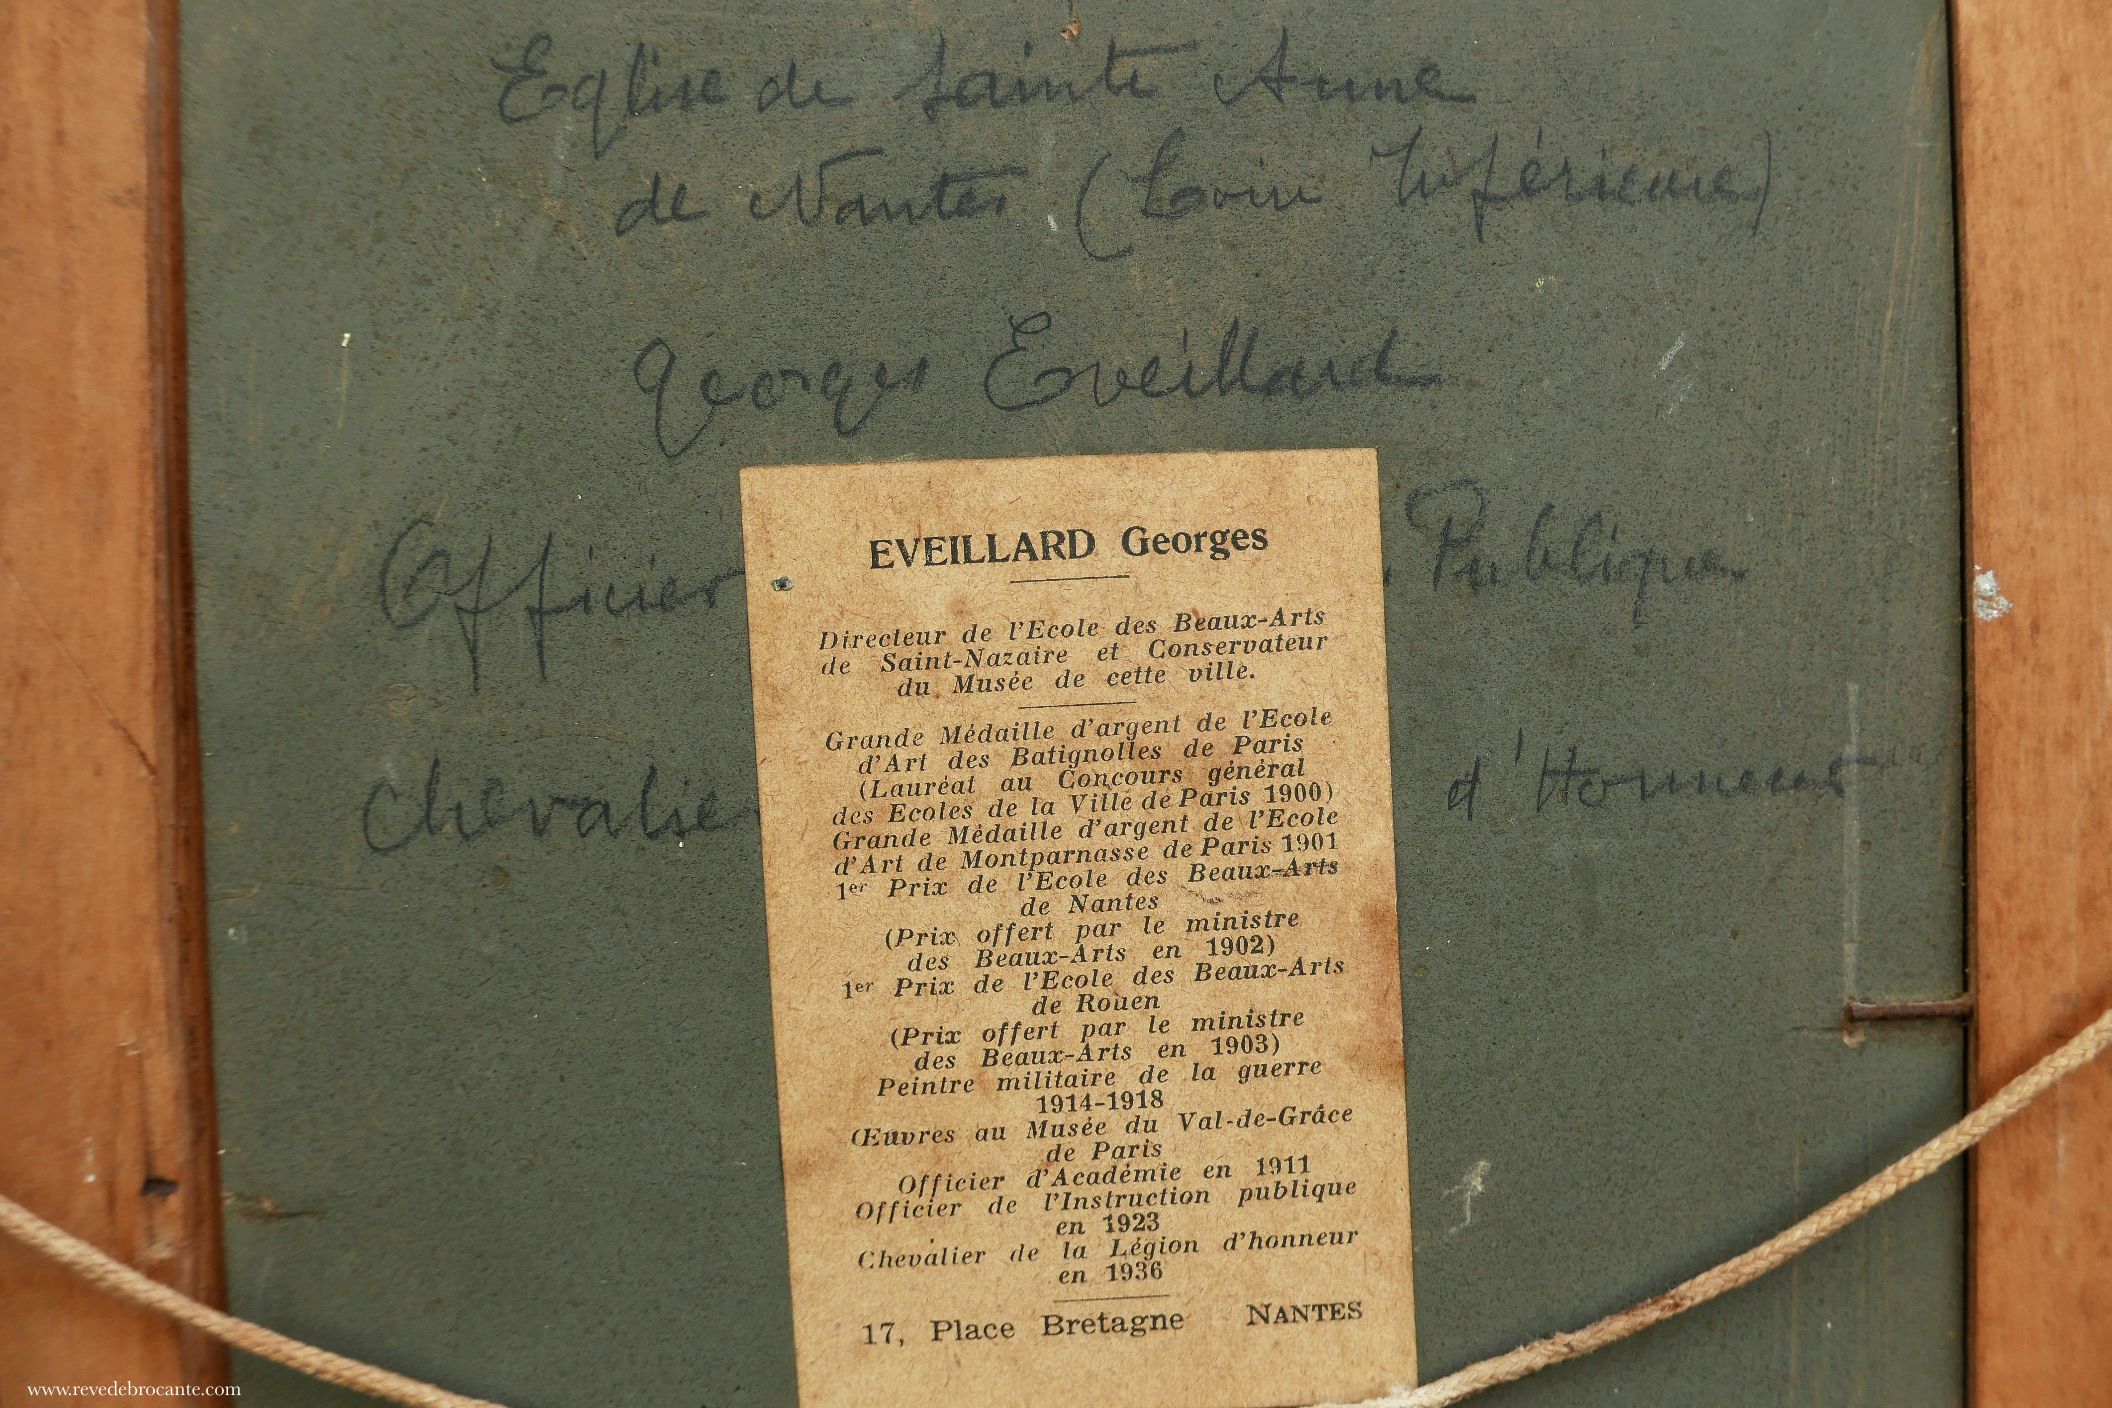 Eglise de Sainte Anne
de Nantes (Loire Inférieure)
Georges Eveillard
Officier . Publique
Chevalier d'Honneur
EVEILLARD Georges
Directeur de l'Ecole des Beaux-Arts
de Saint-Nazaire et Conservateur
du Musée de cette ville.
Grande Médaille d'argent de l'Ecole
d'Art des Batignolles de Paris
(Lauréat au Concours général
des Ecoles de la Ville de Paris 1900)
Grande Médaille d'argent de l'Ecole
d'Art de Montparnasse de Paris 1901
1er Prix de l'Ecole des Beaux-Arts
de Nantes
(Prix offert par le ministre
des Beaux-Arts en 1902)
1er Prix de l'Ecole des Beaux-Arts
de Rouen
(Prix offert par le ministre
des Beaux-Arts en 1903)
Peintre militaire de la guerre
1914-1918
Œuvres au Musée du Val-de-Grâce
de Paris
Officier d'Académie en 1911
Officier de l'Instruction publique
en 1923
Chevalier de la Légion d'honneur
en 1936
17, Place Bretagne NANTES
www.revedebrocante.com